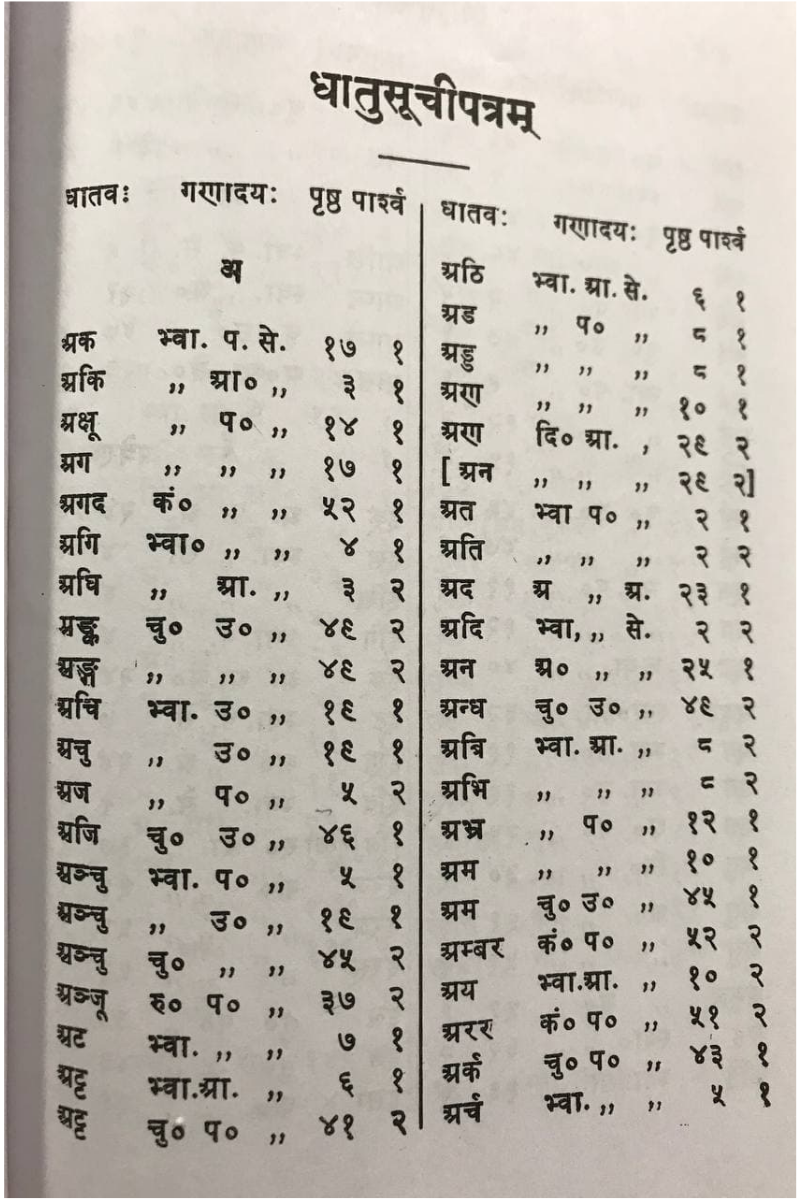 धातुसूचीपत्रम्
धातवः गणादयः पृष्ठ पार्श्व
अ
अक भ्वा. प. से. १७ १
अकि ,, आ० ,, ३ १
अक्षू ,, प० ,, १४ १
अग ,, ,, ,, १७ १
अगद कं० ,, ,, ५२ १
अगि भ्वा० ,, ,, ४ १
अघि ,, आ. ,, ३ २
अङ्क चु० उ० ,, ४९ २
अङ्ग ,, ,, ,, ४९ २
अचि भ्वा. उ० ,, १९ १
अचु ,, उ० ,, १९ १
अज ,, प० ,, ५ २
अजि चु० उ० ,, ४६ १
अञ्चु भ्वा. प० ,, ५ १
अञ्चु ,, उ० ,, १९ १
अञ्चु चु० ,, ,, ४५ २
अञ्जू रु० प० ,, ३७ २
अट भ्वा. ,, ,, ७ १
अट्ट भ्वा.आ. ,, ६ १
अट्ट चु० प० ,, ४१ २
धातवः गणादयः पृष्ठ पार्श्व
अठि भ्वा. आ. से. ६ १
अड ,, प० ,, ८ १
अड्ड ,, ,, ,, ८ १
अण ,, ,, ,, १० १
अण दि० आ. , २९ २
[ अन ,, ,, ,, २९ २]
अत भ्वा प० ,, २ १
अति ,, ,, ,, २ २
अद अ ,, अ. २३ १
अदि भ्वा, ,, से. २ २
अन अ० ,, ,, २५ १
अन्ध चु० उ० ,, ४९ २
अबि भ्वा. आ. ,, ८ २
अभि ,, ,, ,, ८ २
अभ्र ,, प० ,, १२ १
अम ,, ,, ,, १० १
अम चु० उ० ,, ४५ १
अम्बर कं० प० ,, ५२ २
अय भ्वा.आ. ,, १० २
अरर कं० प० ,, ५१ २
अर्क चु० प० ,, ४३ १
अर्च भ्वा. ,, ,, ५ १